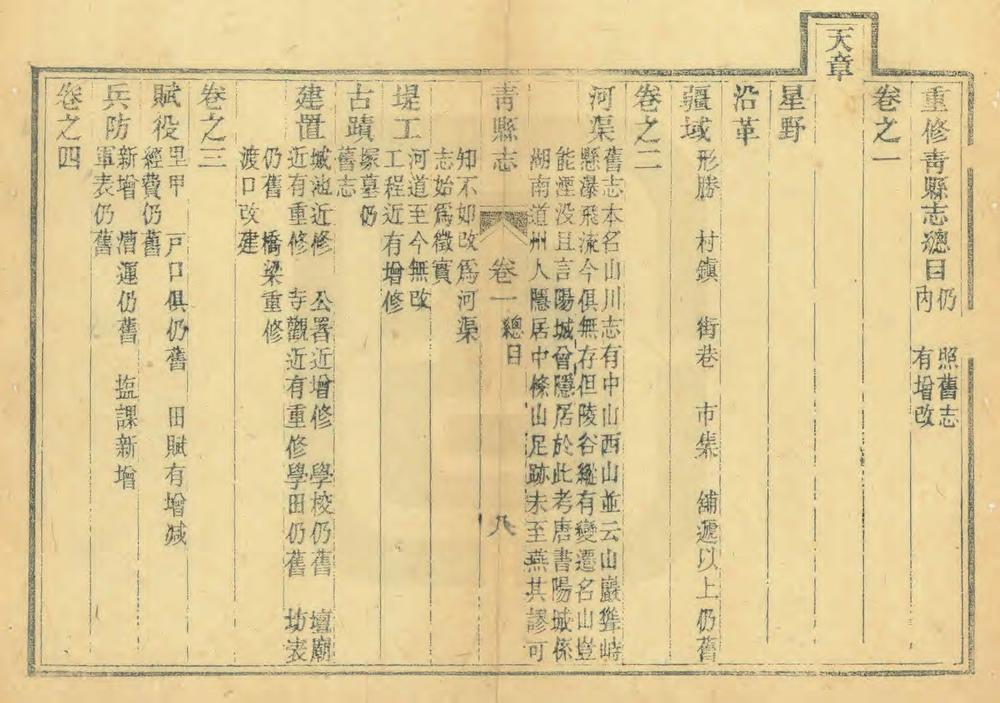 重修靑縣志總目仍照舊志
內有增改
卷之一
天章
星野
沿革
疆域形勝 村鎭 街巷 市集 舖遞以上仍舊
卷之二
河渠舊志本名山川志有中山西山並云山巖聳峙
懸瀑飛流今俱無存但陵谷縱有變遷名山豈
能湮没且言陽城曾隱居於此考唐書陽城係
湖南道州人隱居中條山足跡未至燕其謬可
靑縣志 卷一 總目 八
知不如改爲河渠
志始爲徵實
堤工河道至今無改
工程近有增修
古蹟塚墓仍
舊志
建置城池近修 公署近增修 學校仍舊 壇廟
近有重修 寺觀近有重修 學田仍舊 坊表
仍舊 橋梁重修
渡口改建
卷之三
賦役里甲 戸口俱仍舊 田賦有增減
經費仍舊
兵防新增 漕運仍舊 塩課新增
軍表仍舊
卷之四